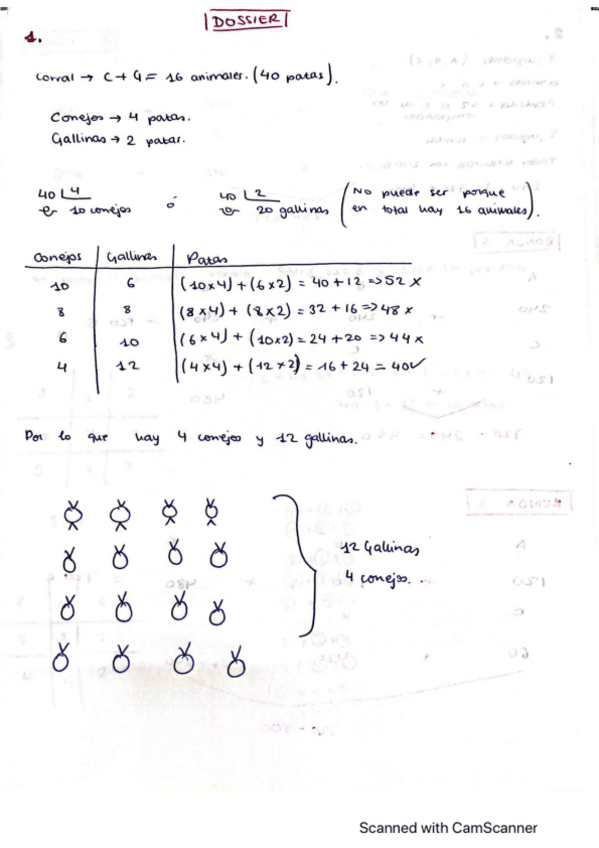 DOSSIER
1.
Corral → C + G = 16 animales. (40 patas).
Conejos → 4 patas.
Gallinas → 2 patas.
40 4 40 2 (No puede ser porque
10 conejos ó 20 gallinas en total hay 16 animales).
Conejos Gallinas Patas
10 6 (10x4) + (6x2) = 40 + 12 => 52 x
8 8 (8x4) + (8x2) = 32 + 16 => 48 x
6 10 (6x4) + (10x2) = 24 + 20 => 44 x
4 12 (4x4) + (12x2) = 16 + 24 = 40 ✓
Por lo que hay 4 conejos y 12 gallinas.
12 Gallinas
4 conejos.
Scanned with CamScanner